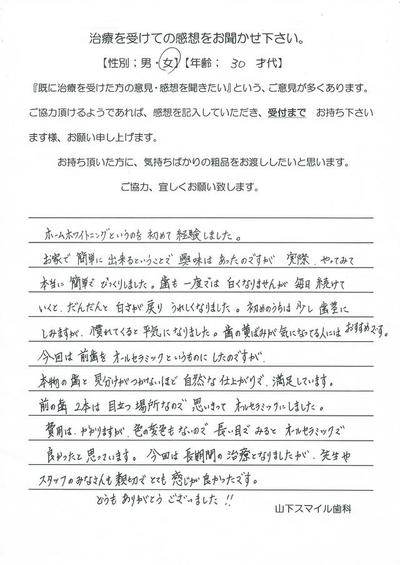 治療を受けての感想をお聞かせ下さい。
【性別：男・女】【年齢： 30 才代】
『既に治療を受けた方の意見・感想を聞きたい』という、ご意見が多くあります。
ご協力頂けるようであれば、感想を記入していただき、受付まで お持ち下さい
ます様、お願い申し上げます。
お持ち頂いた方に、気持ちばかりの粗品をお渡ししたいと思います。
ご協力、宜しくお願い致します。
ホームホワイトニングというのを初めて経験しました。
お家で簡単に出来るということで興味はあったのですが 実際、やってみて
本当に簡単でびっくりしました。歯も一度では白くなりませんが毎日続けて
いくと、だんだんと白さが戻り うれしくなりました。初めのうちは少し歯茎に
しみますが、慣れてくると平気になりました。歯の黄ばみが気になってる人にはおすすめです。
今回は前歯をオールセラミックというものにしたのですが、
本物の歯と見分けがつかないほど自然な仕上がりで、満足しています。
前の歯2本は目立つ場所なので思いきってオールセラミックにしました。
費用は、かかりますが、色の変色もないので長い目でみるとオールセラミックで
良かったと思っています。今回は長期間の治療となりましたが、先生や
スタッフのみなさんも親切でとても感じが良かったです。
どうもありがとうございました!!
山下スマイル歯科